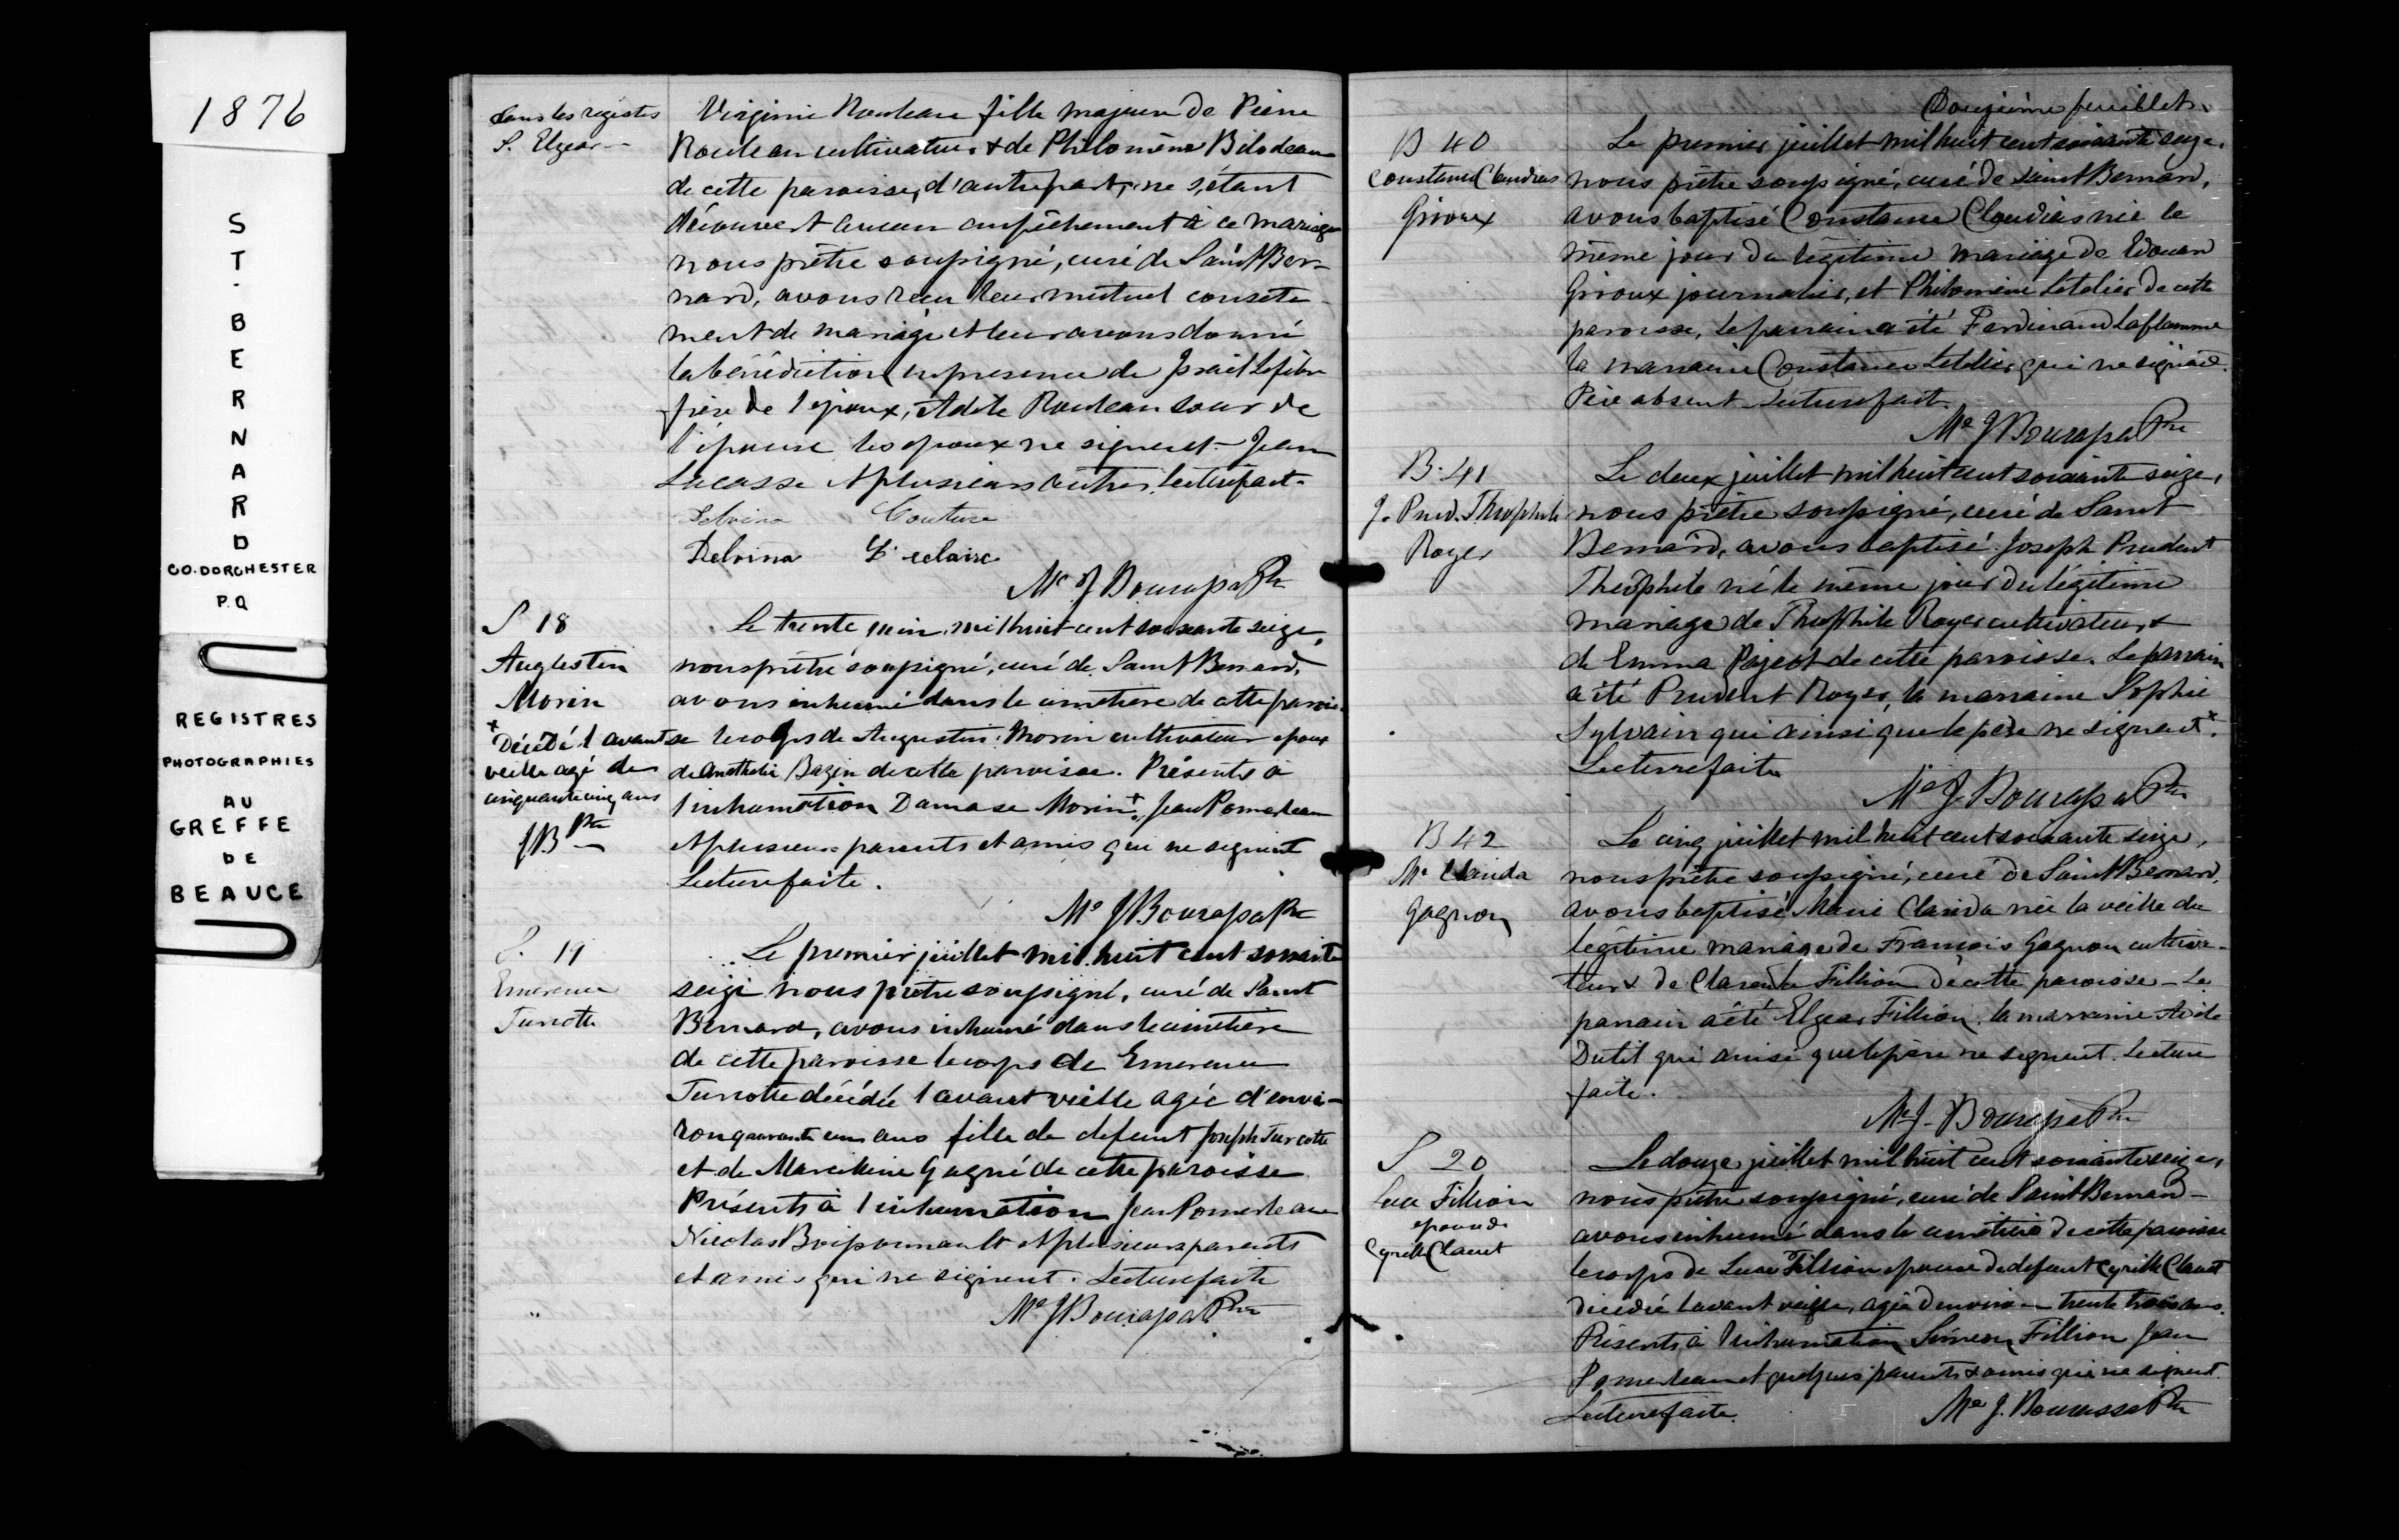 1876
ST. BERNARD
CO. DORCHESTER
P.Q
REGISTRES
PHOTOGRAPHIES
AU
GREFFE
DE
BEAUCE
dans les registres
S. Elzear
Virginie Rouleau fille majeure de Pierre
Rouleau cultivateur & de Philomène Bilodeau
de cette paroisse, d'autre part, ne s'étant
découvert aucun empêchement à ce mariage
nous prêtre soussigné, curé de Saint Ber-
nard, avons reçu leur mutuel consente-
ment de mariage et leur avons donné
la bénédiction en presence de Israël Lefebv
frère de l'époux, Adèle Rouleau sœur de
l'épouse les epoux ne signent Jean
Lacasse & plusieurs autres. Lecture faite.
Delvina Couture
Delvina L'eclaire
Me J Bourassa Ptre
S 18
Augustin
Morin
+
Décédé l'avant
veille agé de
cinquante cinq ans
JB Ptre
Le trente juin mil huit cent soixante seize,
nous prêtre soussigné, curé de Saint Bernard,
avons inhumé dans le cimetiere de cette parois-
se le corps de Augustin Morin cultivateur epoux
de Bazin de cette paroisse. Présents à
l'inhumation Damase Morin + Jean Pomerleau
& plusieurs parents et amis qui ne signent
Lecture faite.
Me J Bourassa Ptre
S. 19
Emerence
Turcotte
Le premier juillet mil huit cent soixante
seize nous prêtre soussigné, curé de Saint
Bernard, avons inhumé dans le cimetière
de cette paroisse le corps de Emerence
Turcotte décédée l'avant veille agée d'envi-
ron quarante ans fille de defunt Joseph Turcotte
et de Marcelline Gagné de cette paroisse
Présents à l'inhumation Jean Pomerleau
Nicolas Boissonnault & plusieurs parents
et amis qui ne signent. Lecture faite
Me J Bourassa Ptre
Douzième feuillet.
B 40
Constance Claudias
Giroux
Le premier juillet mil huit cent soixante seize,
nous prêtre soussigné, curé de Saint Bernard,
avons baptisé Constance Claudias née le
même jour du légitime mariage de Edouard
Giroux journalier, et Philomène Letelier de cette
paroisse, le parrain a été Ferdinand Laflamme
la marraine Constance Letelier qui ne signent.
Père absent. Lecture faite.
Me J Bourassa Ptre
B. 41
J. Prud. Théophile
Royer
Le deux juillet mil huit cent soixante seize,
nous prêtre soussigné, curé de Saint
Bernard, avons baptisé Joseph Prudent
Théophile né le même jour du légitime
mariage de Théophile Royer cultivateur &
de Emma Pageot de cette paroisse. Le parrain
a été Prudent Royer, la marraine Sophie
Sylvain qui ainsi que le père ne signent.
Lecture faite
Me J. Bourassa Ptre
B 42
Me Clarida
Gagnon
Le cinq juillet mil huit cent soixante seize,
nous prêtre soussigné, curé de Saint Bernard,
avons baptisé Marie Clarida née la veille du
légitime mariage de François Gagnon cultiva-
teur & de Clarenda Fillion de cette paroisse - Le
parrain a été Elzear Fillion, la marraine Adèle
Dutil qui ainsi que le père ne signent. Lecture
faite.
Me J. Bourassa Ptre
S 20
Luce Fillion
epouse de
Cyrille Clavet
Le douze juillet mil huit cent soixante seize,
nous prêtre soussigné, curé de Saint Bernard
avons inhumé dans le cimetière de cette paroisse
le corps de Luce Fillion epouse de defunt Cyrille Clavet
décédée l'avant veille, agée d'environ trente trois ans.
Présents à l'inhumation Siméon Fillion Jean
Pomerleau et quelques parents & amis qui ne signent.
Lecture faite.
Me J. Bourassa Ptre